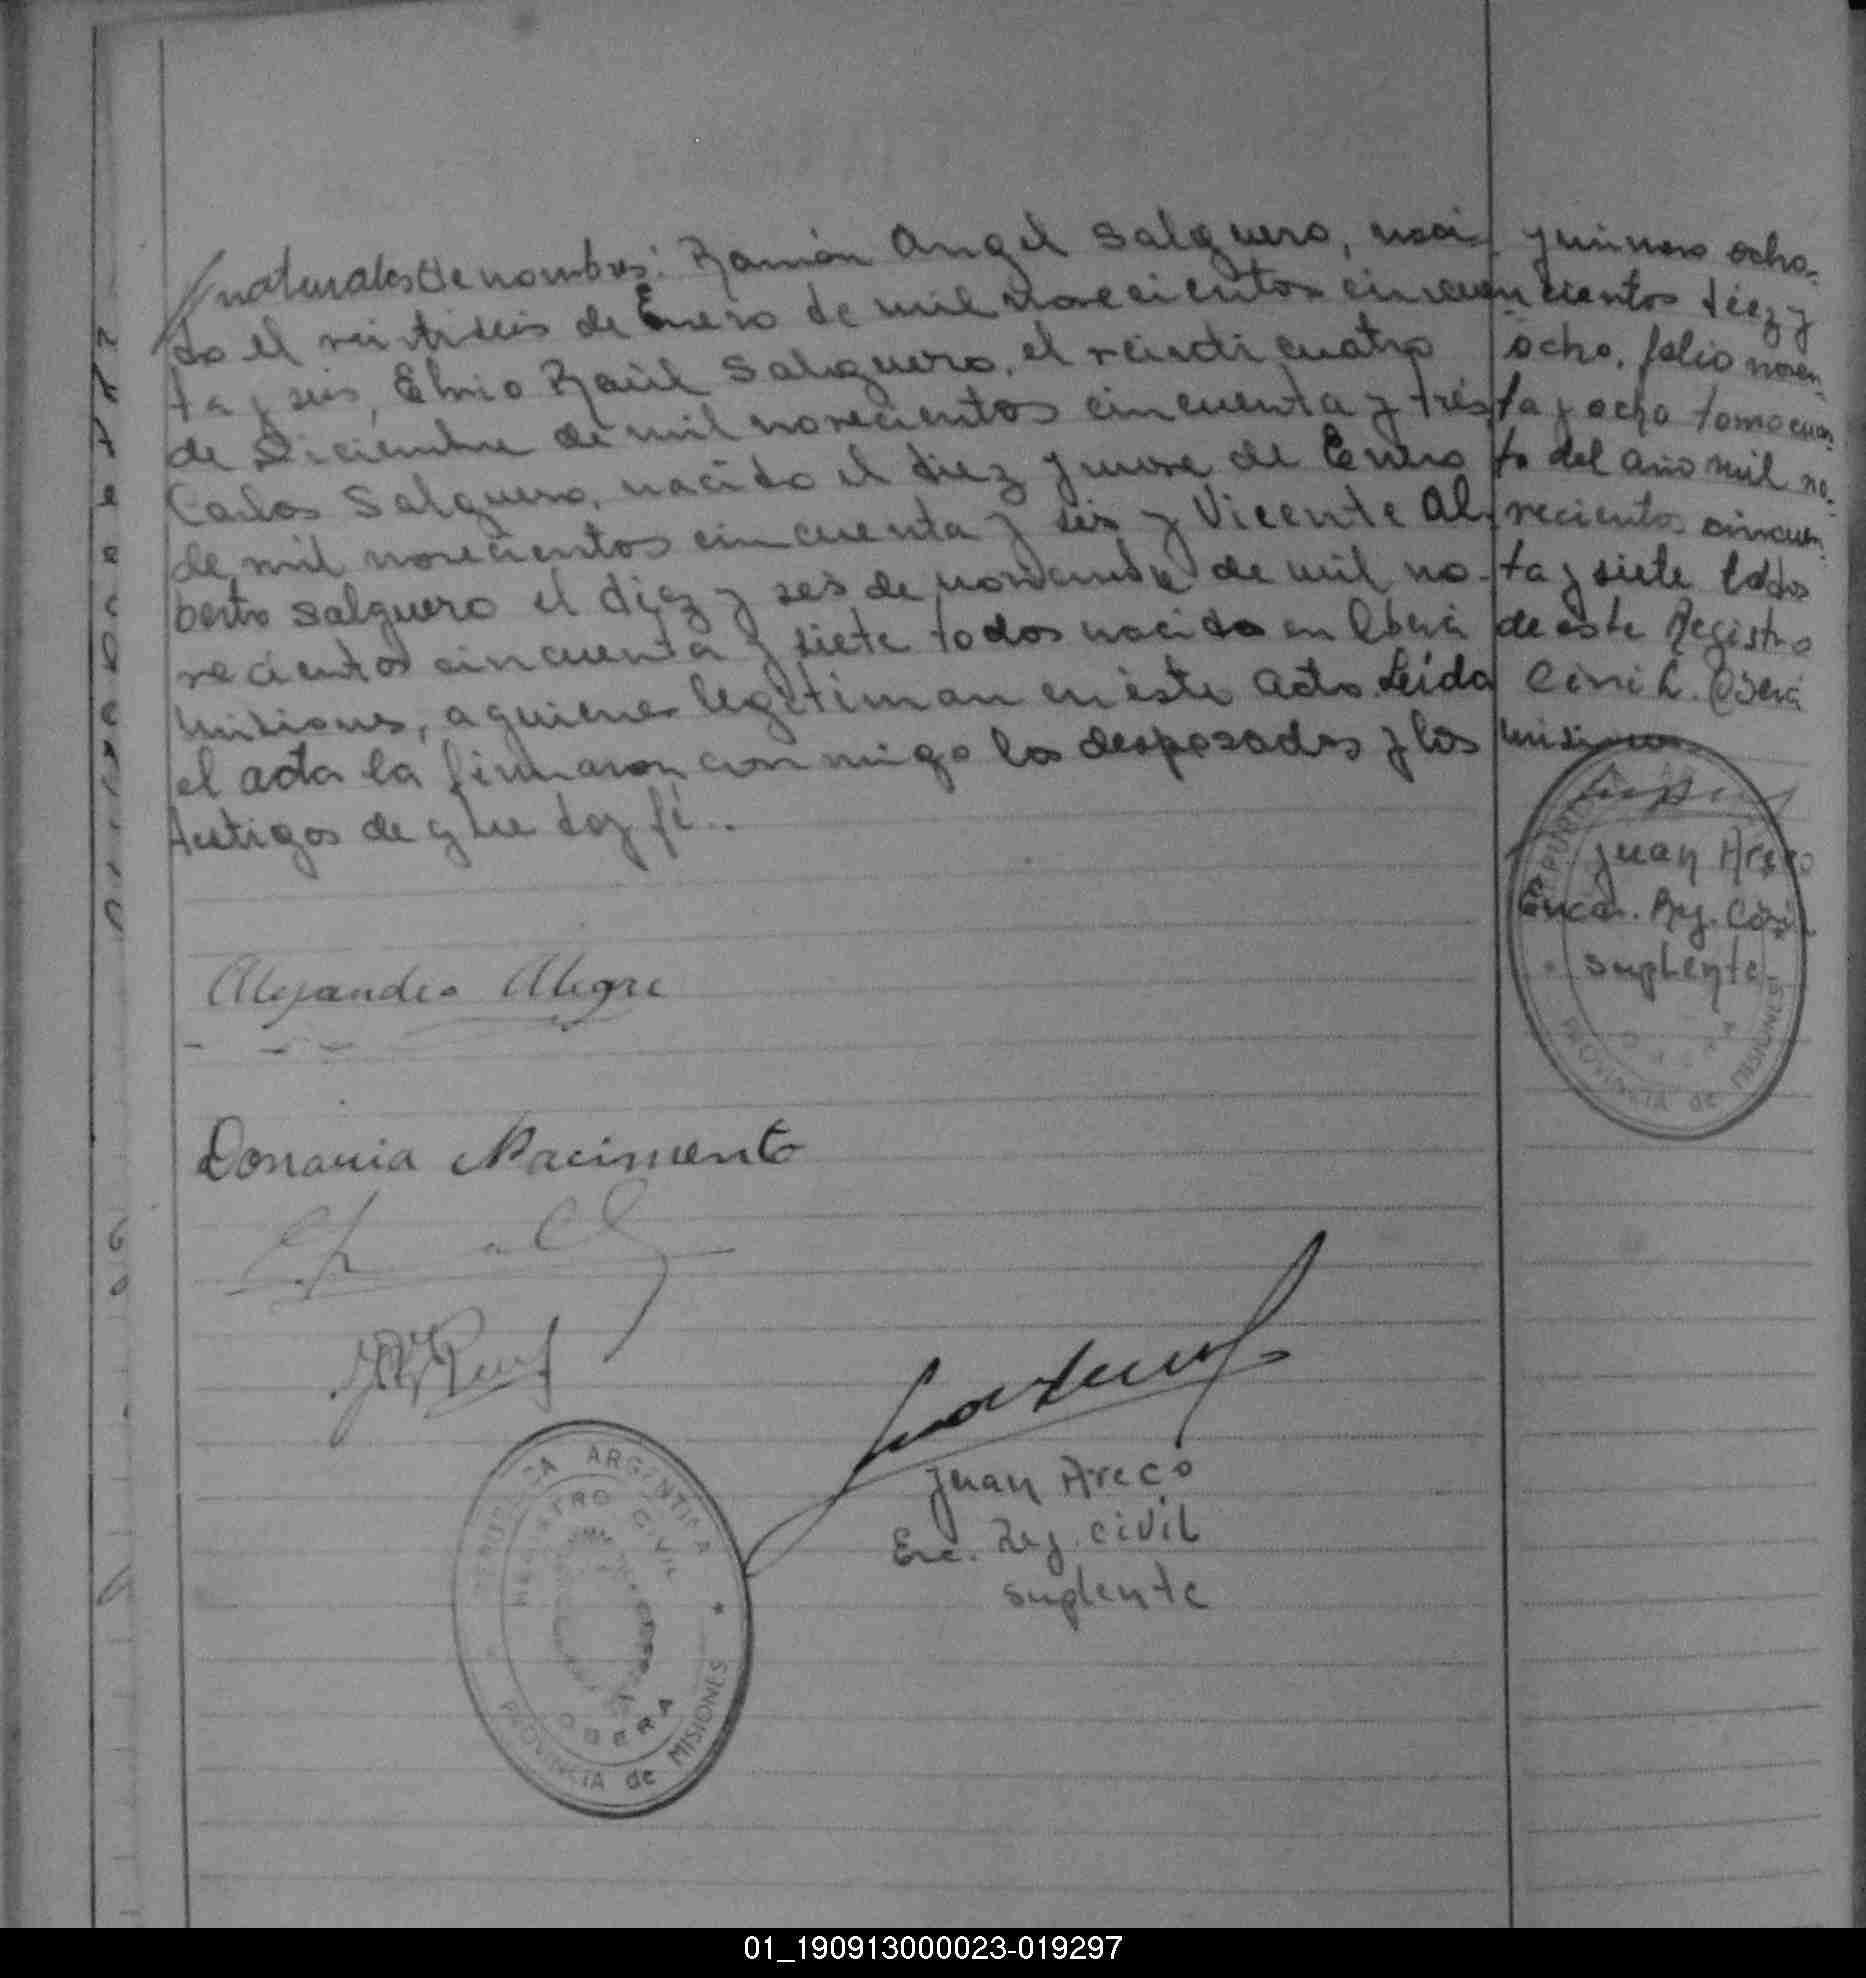 naturales de nombres: Ramón Angel Salguero, naci-
do el veintiseis de Enero de mil novecientos cincuen
ta y seis, Elvio Raúl Salguero, el veinti cuatro
de Diciembre de mil novecientos cincuenta y trés,
Carlos Salguero, nacido el diez y nueve de Enero
de mil novecientos cincuenta y seis y Vicente Al
berto Salguero el diez y seis de noviembre de mil no-
vecientos cincuenta y siete todos nacidos en Oberá
Misiones, a quienes legitiman en éste acto Leida
el acta la firmaron conmigo los desposados y los
testigos de que doy fé..
y número ocho-
cientos diez y
ocho, folio noven
ta y ocho tomo cuar
to del año mil no-
vecientos cincuen
ta y siete todos
de este Registro
Civil. Oberá
Misiones
Juan Areco
Encar. Reg. Civil
suplente
REPUBLICA
PROVINCIA de MISIONES
OBERA
Alejandro Alegre
Donaria Nacimento
Juan Areco
Enc. Reg. Civil
suplente
REPUBLICA ARGENTINA
REGISTRO CIVIL
OBERA
PROVINCIA de MISIONES
01_190913000023-019297